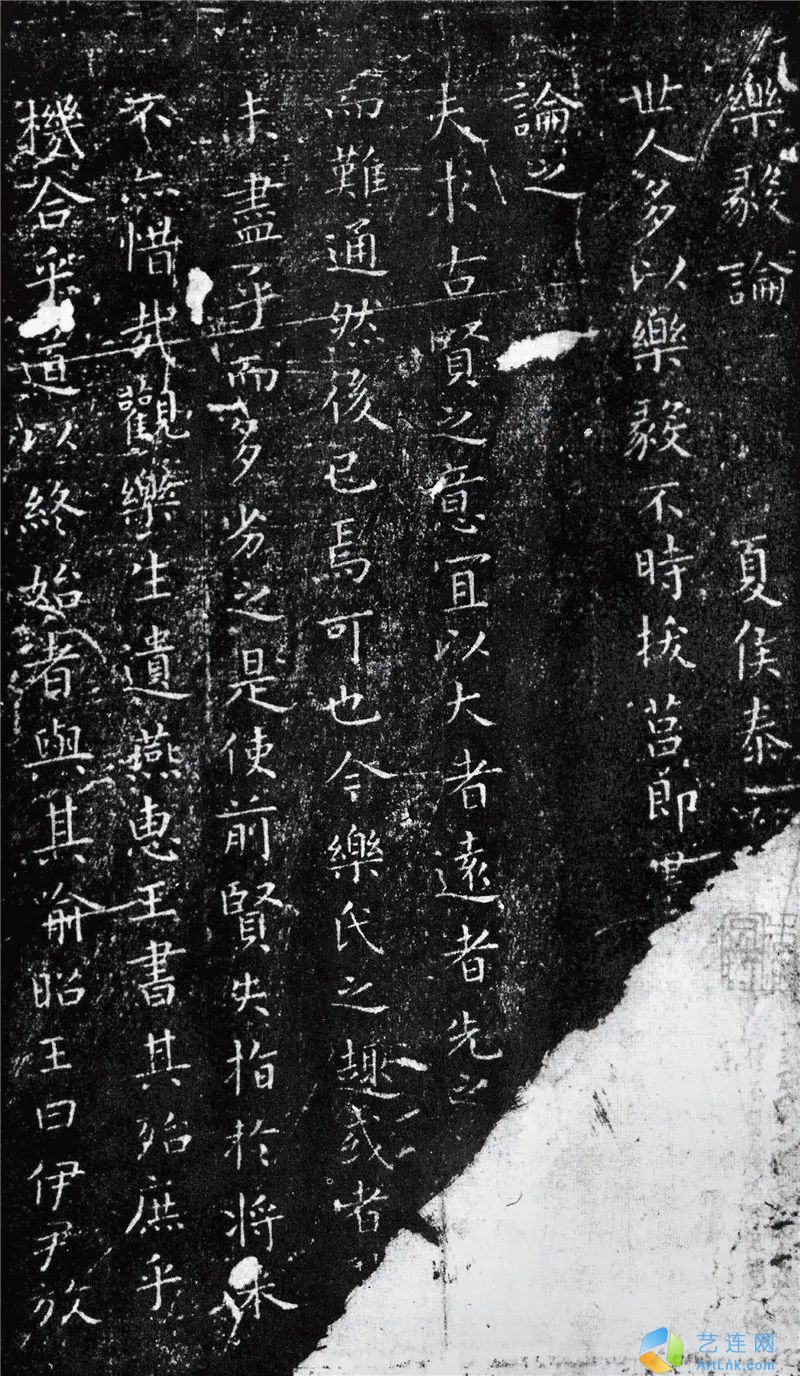 樂毅論 夏侯泰
世人多以樂毅不時拔莒即
論之
夫求古賢之意宜以大者遠者先之
而難通然後已焉可也今樂氏之趣或者
未盡乎而多劣之是使前賢失指於将来
不亦惜哉觀樂生遺燕惠王書其殆庶乎
機合乎道以終始者與其喻昭王曰伊尹放
艺连网
ArtLnk.com